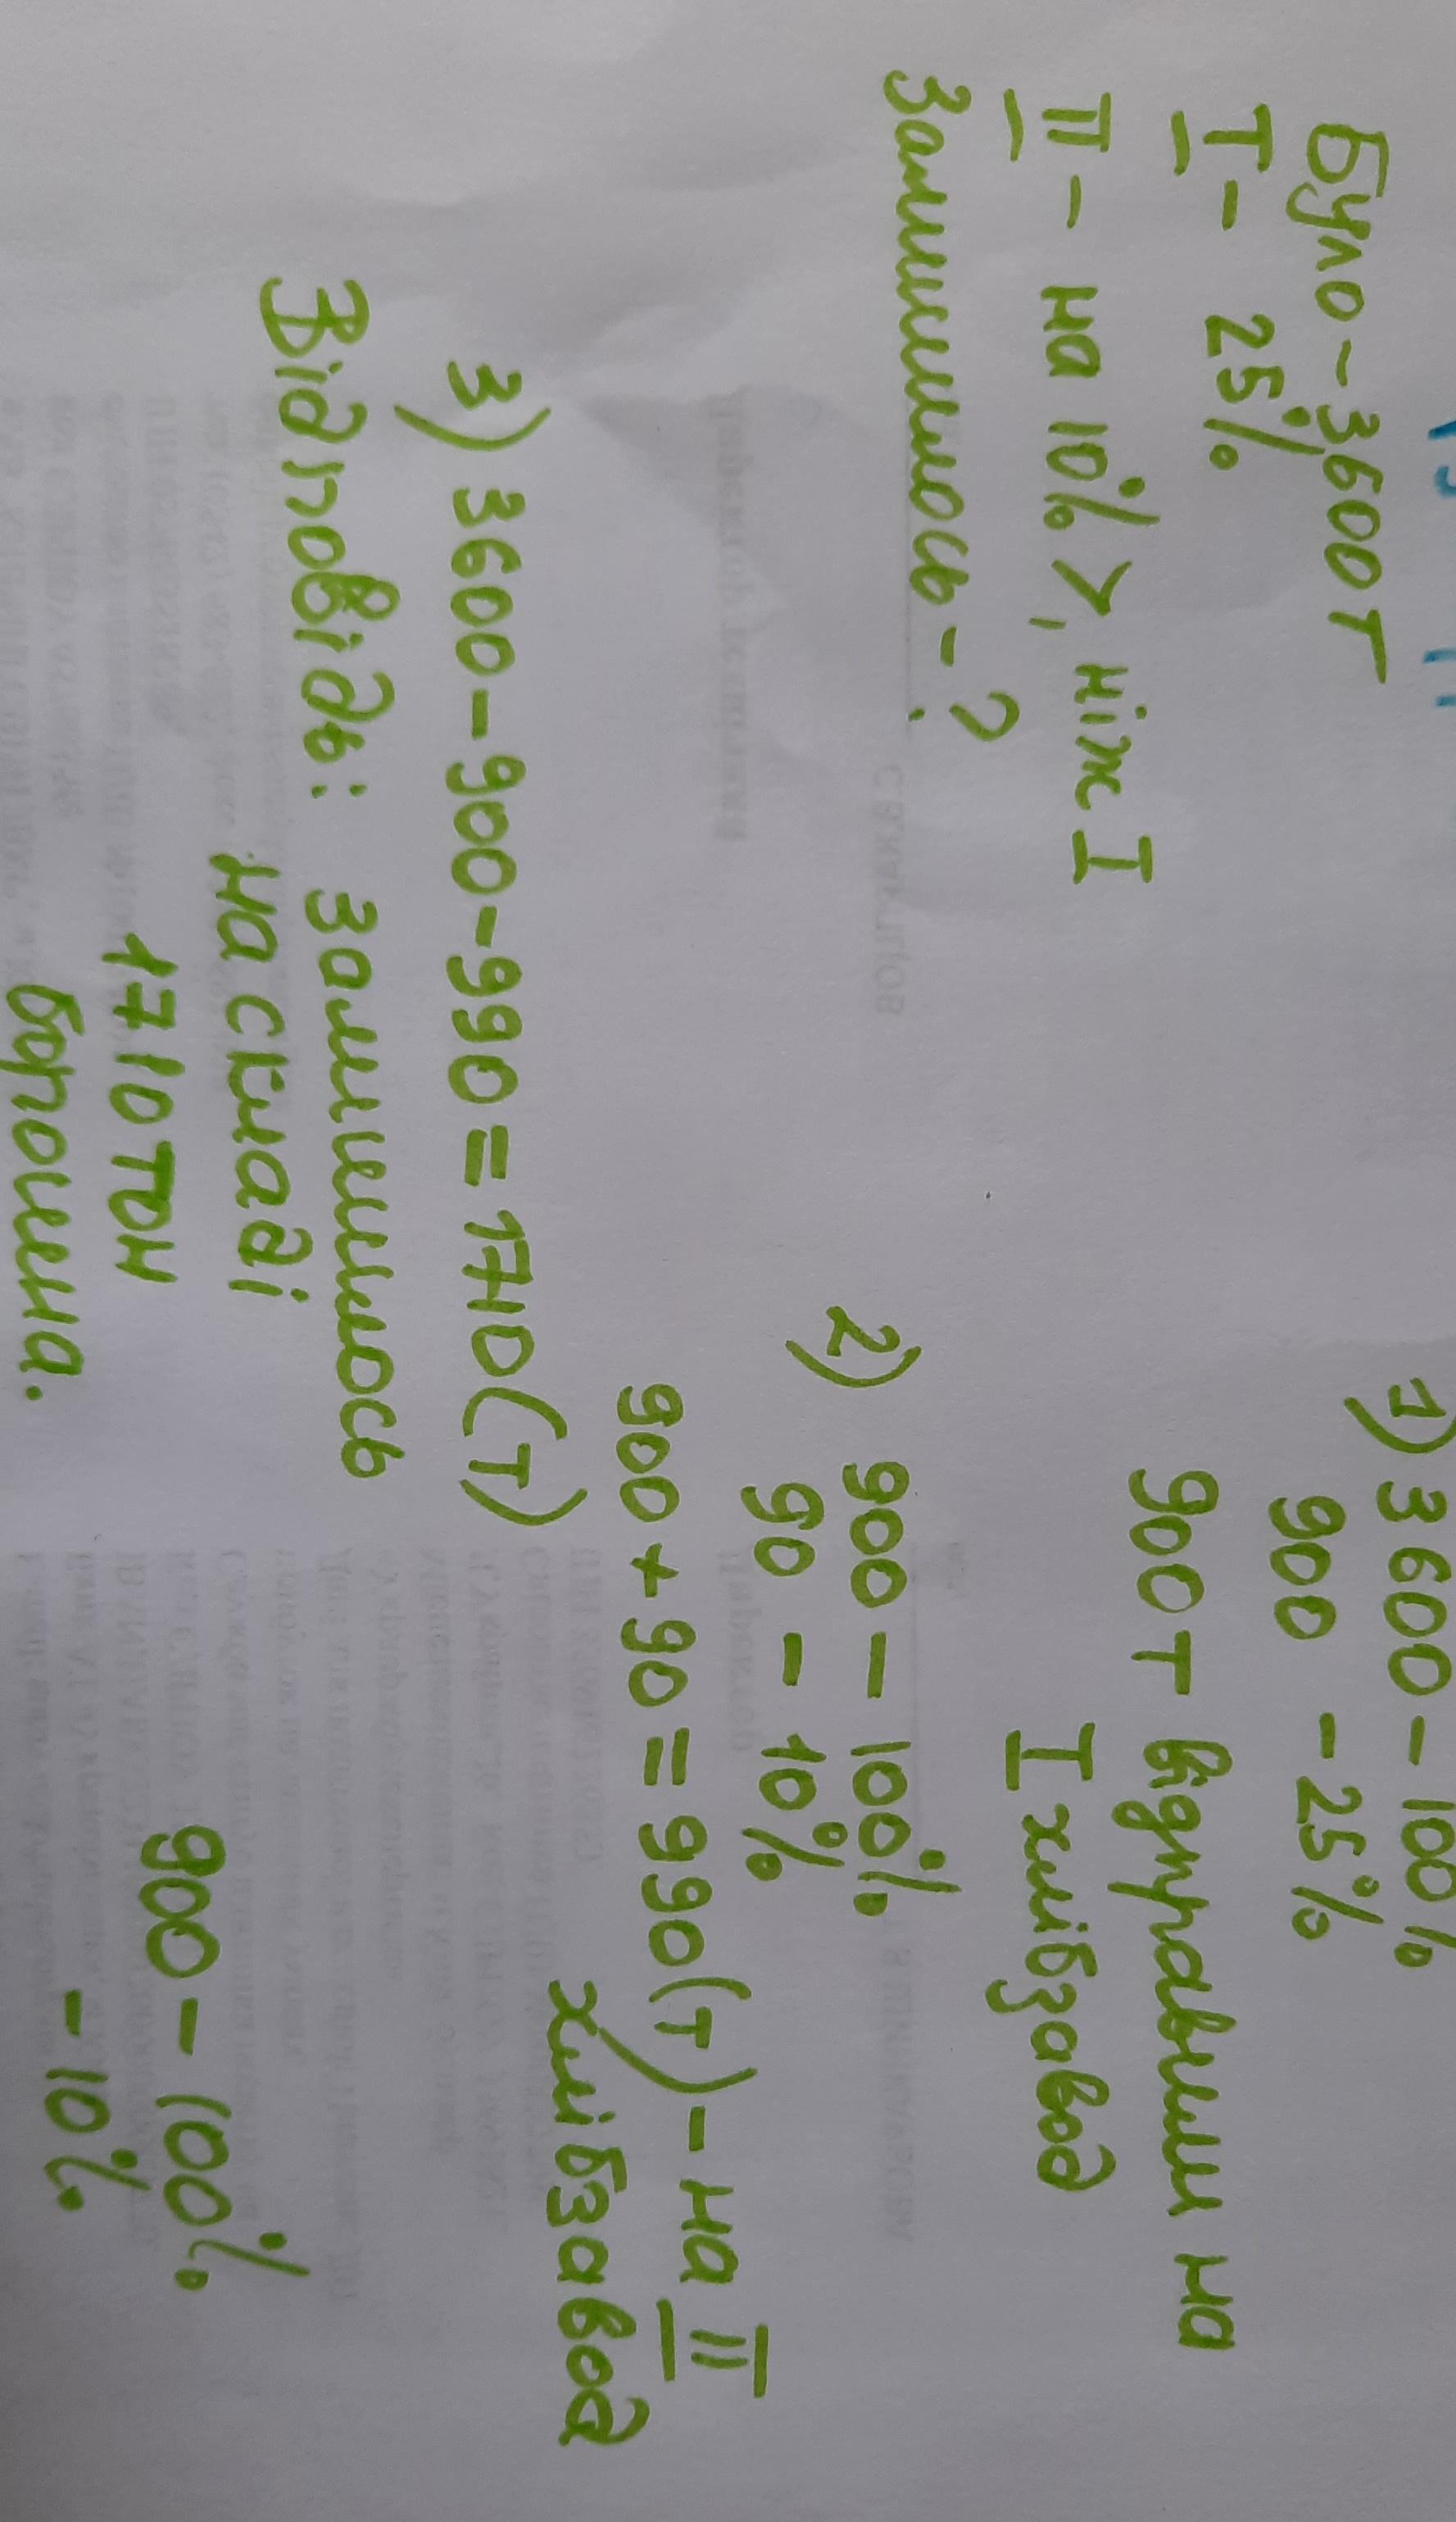 Було - 3600 т
I - 25%
II - на 10% >, ніж I
Залишилось - ?
1) 3600 - 100%
900 - 25%
900 т відправили на
I хлібзавод
2) 900 - 100%
90 - 10%
900 + 90 = 990 (т) - на II
хлібзавод
3) 3600 - 900 - 990 = 1710 (т)
Відповідь: залишилось
на складі
1710 тон
борошна.
900 - 100%
- 10%